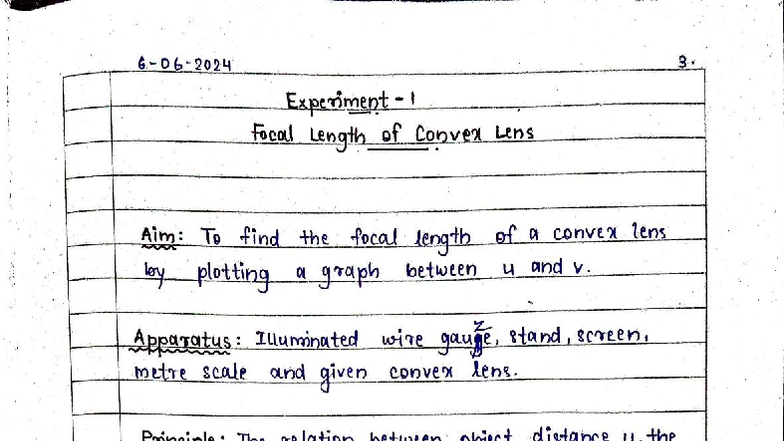 6-06-2024 3.
Experiment - 1
Focal Length of Convex Lens
Aim: To find the focal length of a convex lens
by plotting a graph between u and v.
Apparatus: Illuminated wire gauze, stand, screen,
metre scale and given convex lens.
Principle: The relation between object distance u, the